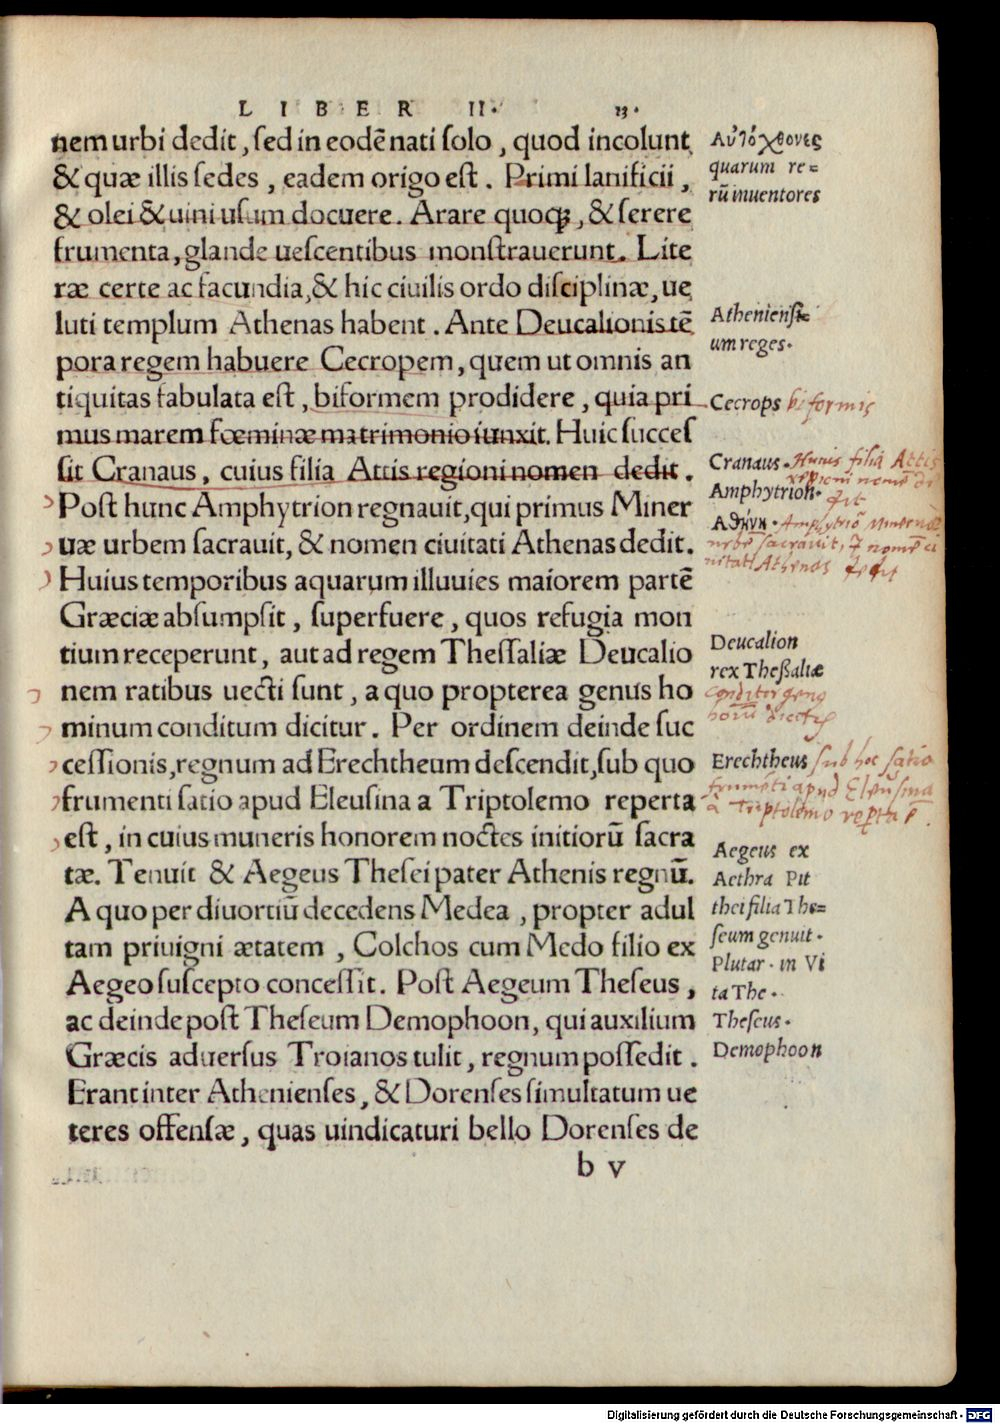 LIBER II. 13.
nem urbi dedit, sed in eodē nati solo, quod incolunt,
& quæ illis sedes, eadem origo est. Primi lanificii,
& olei & uini usum docuere. Arare quoqꝫ, & serere
frumenta, glande uescentibus monstrauerunt. Lite
ræ certe ac facundia, & hic ciuilis ordo disciplinæ, ue
luti templum Athenas habent. Ante Deucalionis tē
pora regem habuere Cecropem, quem ut omnis an
tiquitas fabulata est, biformem prodidere, quia pri
mus marem fœminæ matrimonio iunxit. Huic succes
sit Cranaus, cuius filia Attis regioni nomen dedit.
Post hunc Amphytrion regnauit, qui primus Miner
uæ urbem sacrauit, & nomen ciuitati Athenas dedit.
Huius temporibus aquarum illuuies maiorem partē
Græciæ absumpsit, superfuere, quos refugia mon
tium receperunt, aut ad regem Thessaliæ Deucalio
nem ratibus uecti sunt, a quo propterea genus ho
minum conditum dicitur. Per ordinem deinde suc
cessionis, regnum ad Erechtheum descendit, sub quo
frumenti satio apud Eleusina a Triptolemo reperta
est, in cuius muneris honorem noctes initiorū sacra
tæ. Tenuit & Aegeus Thesei pater Athenis regnū.
A quo per diuortiū decedens Medea, propter adul
tam priuigni ætatem, Colchos cum Medo filio ex
Aegeo suscepto concessit. Post Aegeum Theseus,
ac deinde post Theseum Demophoon, qui auxilium
Græcis aduersus Troianos tulit, regnum possedit.
Erant inter Athenienses, & Dorenses simultatum ue
teres offensæ, quas uindicaturi bello Dorenses de
b v
Αὐτόχθονες
quarum re=
rū inuentores
Atheniensi
um reges.
Cecrops biformis
Cranaus. Hunis filia Attis
regioni nomē de
dit
Amphytrion.
Αθήνη. Amphytriō Mineruæ
urbē sacrauit, & nomē ci
uitati Athenas dedit
Deucalion
rex Theßaliæ
conditor genꝰ
hoīū
Erechtheus sub hoc satio
frumēti apud Eleusina
a Triptolemo repta ē.
Aegeus ex
Aethra Pit
thei filia The=
seum genuit.
Plutar. in Vi
ta The.
Theseus.
Demophoon
Digitalisierung gefördert durch die Deutsche Forschungsgemeinschaft - DFG